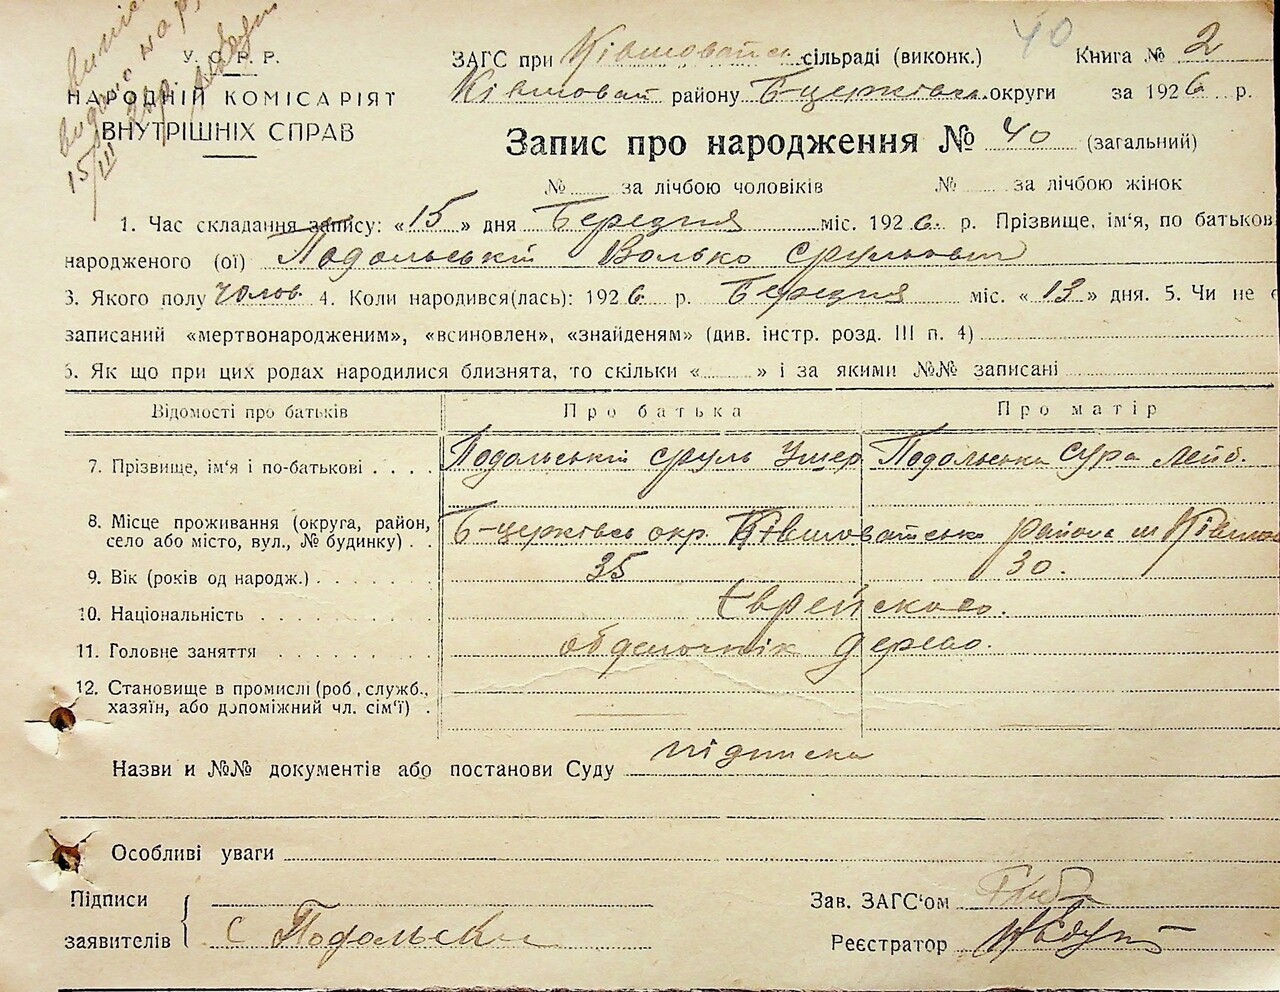 У. С. Р. Р.
НАРОДНІЙ КОМІСАРІЯТ
ВНУТРІШНІХ СПРАВ
15/III
ЗАГС при Ківшовайск. сільраді (виконк.) 40 Книга № 2
Ківшовай району Б-церківськ. округи за 1926 р.
Запис про народження № 40 (загальний)
№ за лічбою чоловіків № за лічбою жінок
1. Час складання запису: «15» дня Березня міс. 1926. р. Прізвище, ім'я, по батькові
народженого (ої) Подольській Волько Срульович
3. Якого полу чолов. 4. Коли народився(лась): 1926 р. Березня міс. «13» дня. 5. Чи не є
записаний «мертвонародженим», «всиновлен», «знайденям» (див. інстр. розд. III п. 4)
6. Як що при цих родах народилися близнята, то скільки « » і за якими №№ записані
Відомості про батьків Про батька Про матір
7. Прізвище, ім'я і по-батькові . . . . Подольській Сруль Ушер Подольська Сура Лейб.
8. Місце проживання (округа, район, село або місто, вул., № будинку) . . Б-церківсь окр. Ківшоватсько района м Ківшов
9. Вік (років од народж.) . . . . . . . 35 30.
10. Національність . . . . . . . . . Еврейского.
11. Головне заняття . . . . . . . . дерево.
12. Становище в промислі (роб, служб., хазяїн, або допоміжний чл. сім'ї) .
Назви и №№ документів або постанови Суду підписка
Особливі уваги
Підписи
заявителів С Подольски
Зав. ЗАГС'ом
Реєстратор